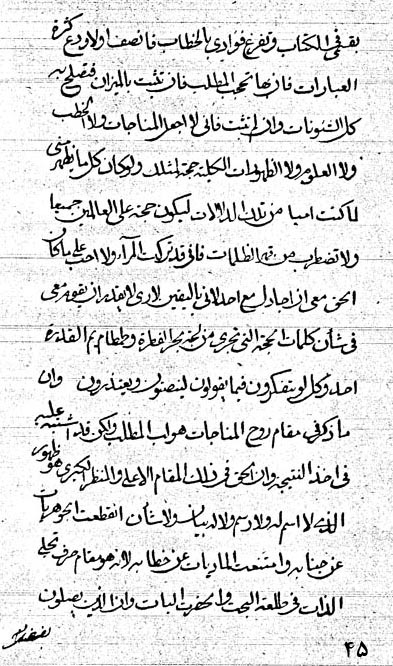 بقي في الكتاب وتفرغ فوادي بالخطاب فانصف اولا ودع كثرة
العبارات فانها تحجب المطلب فان تثبت بالميزان فتصلح به
كل الشئونات وان لم تثبت فاني لا اجعل المناجات ولا الخطب
ولا العلوم ولا الظهورات الكلية حجة لمثلك ولو كان كل ما يظهر مني
لما كنت اميا من تلك الدلالات ليكون حجة على العالمين جميعا
ولا تضطرب من الظلمات فاني قد تركت المرآء ولا احب على ما كان
الحق معي ان اجادل مع احد لاني باليقين لاري لا يقدر ان يقوم معي
في شأن كلمات الحجة التي تجري من لجة بحر القدرة وطمطام يم القدرة
احد وكل لو يتفكرون فيما يقولون لينصفون ويعتذرون وان
ما ذكر في مقام روح المناجات هو لب المطلب ولكن قد اشتبه عليه
في اخذ النتيجة وان الحق في ذلك المقام الاعلى والمنظر الكبرى هو ظهور
الذي لا اسم له ولا رسم ولا له بيان ولا شأن انقطعت الجوهريات
عن جنابه وامتنعت الماديات عن خطابه لانه هو مقام حرف تجلى
الذات في طلعة البحت والكهرب البات وان الذين يصلون
۴۵